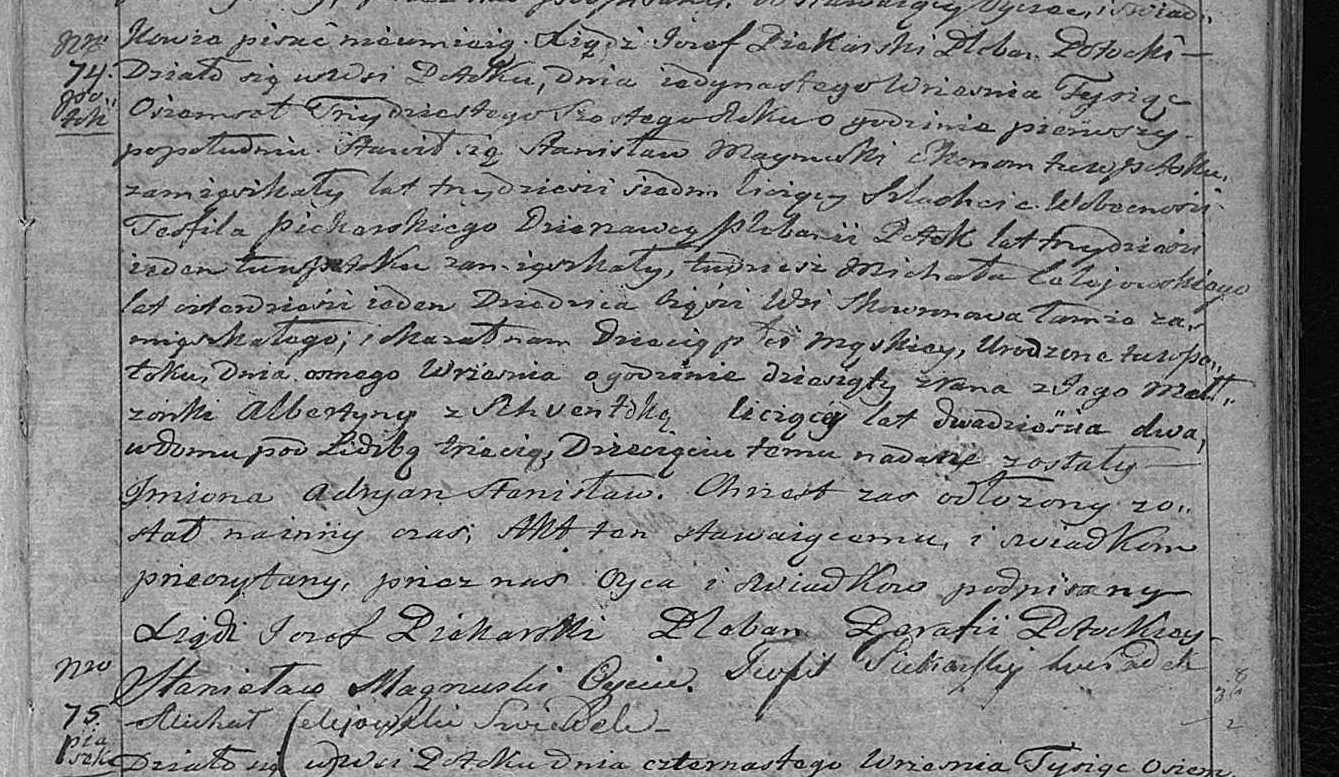 kowie pisać nieumieią. Xiądz Jozef Piekarski Pleban Potocki —
Nro 74. Działo się w wsi Potoku, dnia iedynastego Wrzesnia Tysiąc
Potok Osiemset Trzydziestego Szostego Roku o godzinie pierwszy
popołudniu. Stawił się Stanisław Magnuski Ekonom tuwpotoku
zamięszkały lat trzydziesci siedm liczący Szlachcic. Wobecnosci
Teofila Piekarskiego Dzierzawcy Plebanii Potok lat trzydziesci
ieden tuwpotoku zamięszkały, tudziesz Michała Celejowskiego
lat czterdziesci ieden Dziedzica Częsci Wsi Skowronowa tamże za„
mięszkałego; i okazał nam Dziecię płci Męskiey, Urodzone tuwpo„
toku, dnia osmego Wrzesnia o godzinie dziesięty zrana z Jego Małł„
żonki Albertyny z liczący lat dwadziescia dwa,
wdomu pod Liczbą trzecią, Dziecięciu temu nadane zostały —
Jmiona Adryan Stanisław. Chrzest zas odłożony zo„
stał nainny czas; Akt ten stawaiącemu, i swiadkom
przeczytany, przez nas Oyca i swiadkow podpisany
Xiądz Jozef Piekarski Pleban Parafii Potockiey —
Stanisław Magnuski Oyciec. Teofil Piekarski swiadek
Michał Celejowski Swiadek —
Nro 75. Działo się w wsi Potoku dnia czternastego Wrzesnia Tysiąc Osiem